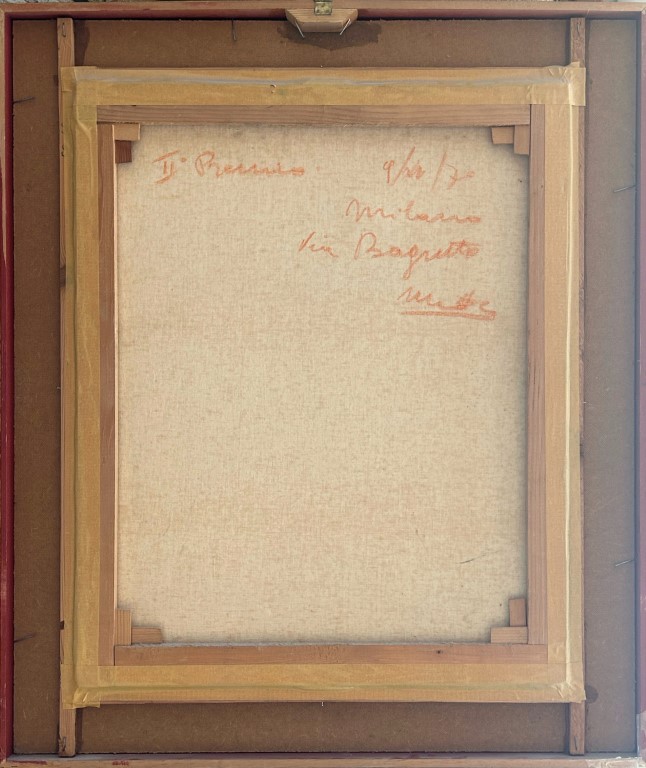 II° Premio 9/11/70
Milano
Via Bagutta